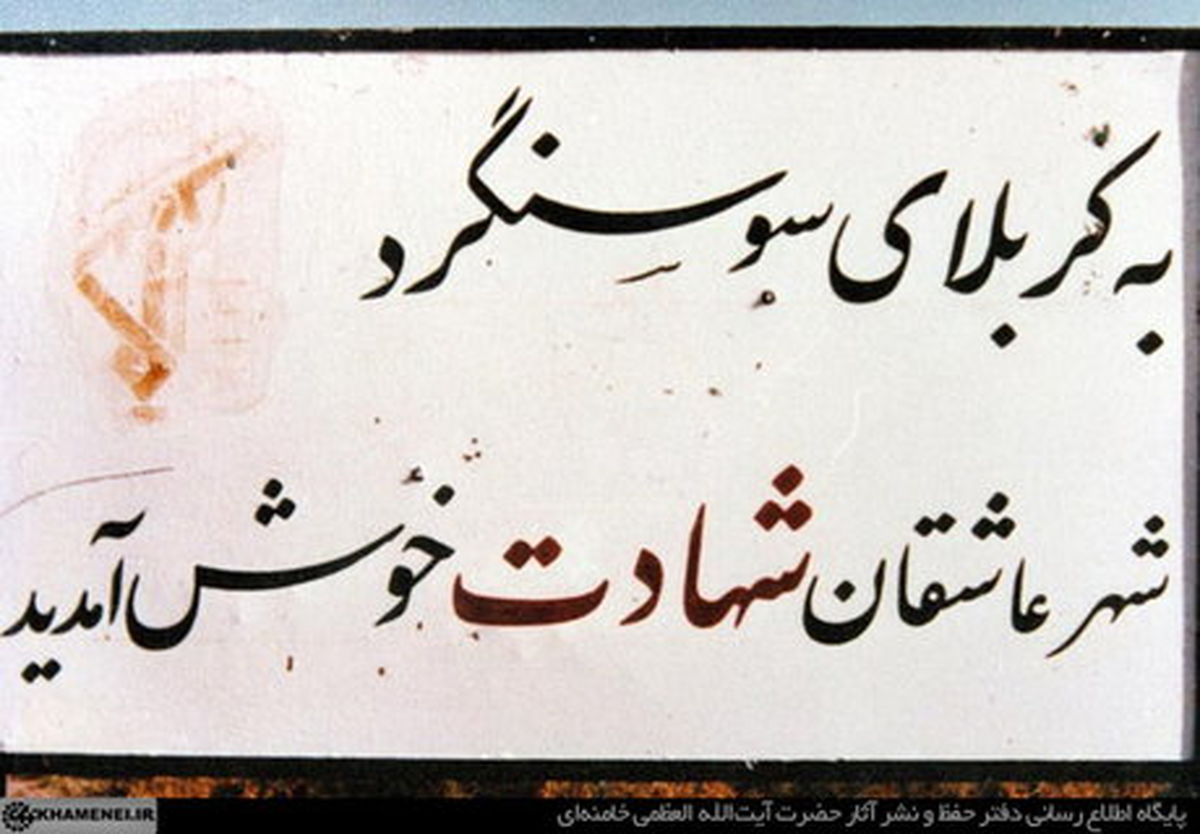 به کربلای سوسنگرد
شهر عاشقان شهادت خوش آمدید
KHAMENEI.IR
پایگاه اطلاع رسانی دفتر حفظ و نشر آثار حضرت آیت‌الله العظمی خامنه‌ای